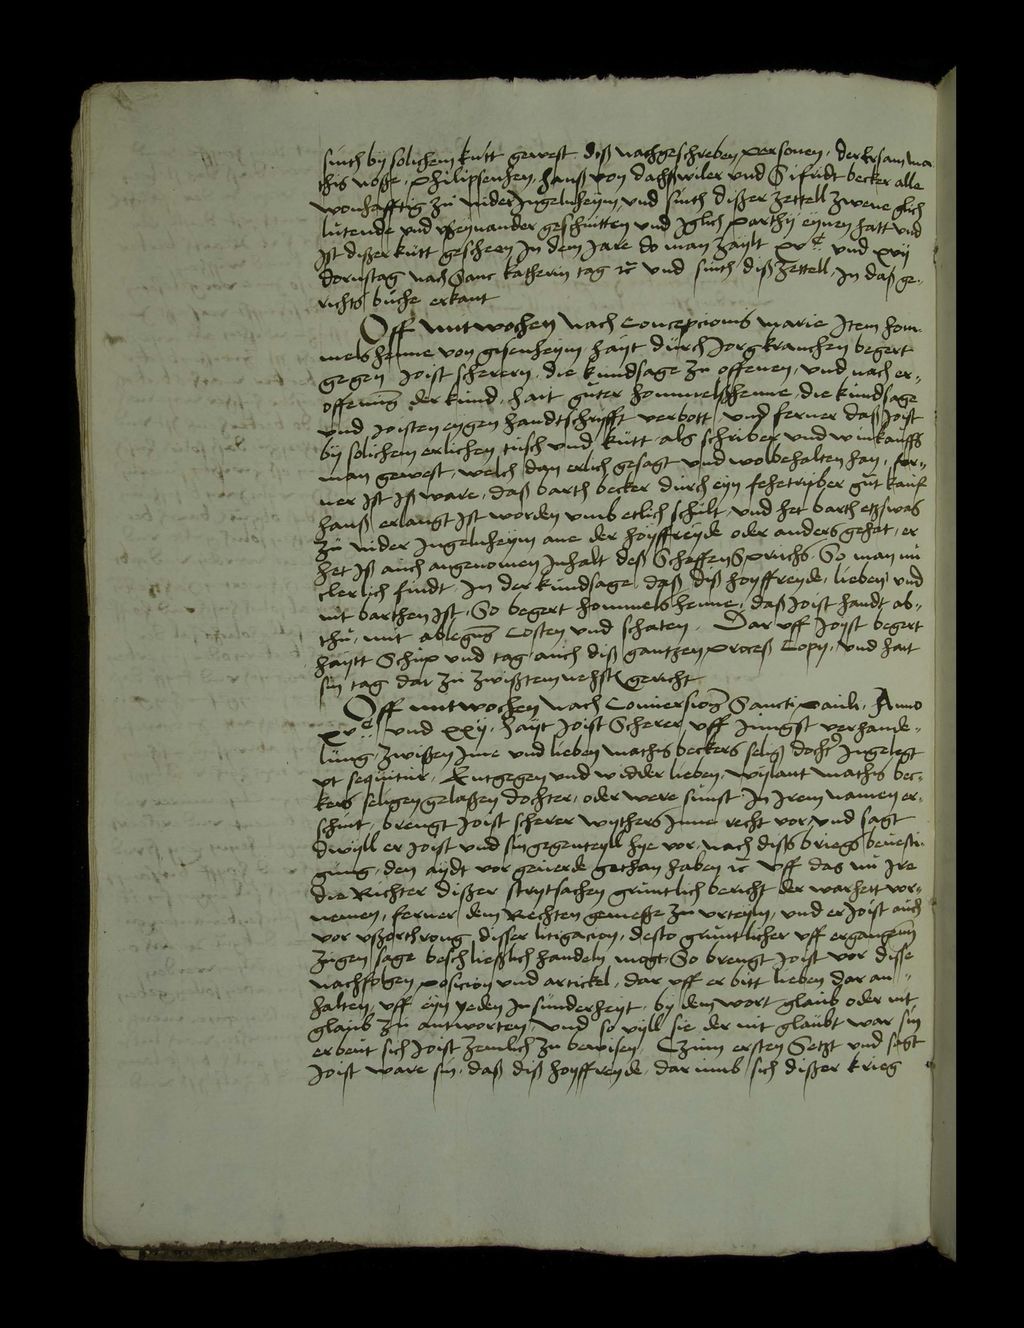 sinth by solichem kutt gewest diß nachgeschreben personen, der Ersam ma
this noße, Philipsenhen, hanß von dachßwiler und Sifridt becker alle
wonhafftig zu nider Ingelnheym und sinth dißer zettell zwene glich
lutende und ußeynander geschnitten und Iglich parthij eynen hatt und
Ist dißer kutt gescheen In dem Jare do man zaylt xvc und xvij
dornstag nach Sanc katherin tag rc und sinth diß zettell In daß ge„
richts buche erkant
Off mitwochen nach Concepcionis marie Item hom„
mels henne von gisenheym hayt durch Jorg kranchen begert
gegen Joist scherern, die kundsage zu offenen, und nach er„
offenung der kund, hait guter hommelßhenne, die kundsage
und Joisten eygen handtschrifft verbott und ferner daß Joist
by solichem erlichen tusch und kutt als schriber und winkauffs
man gewest, welch dan erlich gesagt und wolbehalten han, fer„
ner Ist Iß ware, daß barth becker durch eyn fehetryber gut kauf
hanß erlangt Ist worden umb etlich schult und het barth etzwas
zu nider Ingelnheym ane der hoyffreyde oder anders gehat, er
het Iß auch angenomen Inhalt deß Scheffen Sprichs So man nu
clerlich findt In der kundsage, daß diß hoyffreyde, lieben und
nit barthen Ist, So begert hommels henne, daß Joist handt ab„
thu, mit ablegung Costen und schaten, Dar uff Joist begert
haytt Schup und tag, auch diß gantzen proceß Copy, und hait
sin tag dar zu zwißtem nehst gericht
Off mitwochen nach Conversionis Sancti pauli, Anno
xvc und xxij, hayt Joist Scherer uff Jungst verhande„
lung, zwißen Ime und lieben mathis beckers selig dochter Ingelegt
ut sequitur, Entgegen und widder lieben, wylant mathis bec„
kers seligen gelaßen dochter, oder were sunst In Irem namen er„
schint, brengt Joist scherer wythers Inne recht vor, und sagt
dwyll er Joist und sin gegenteyll hye vor, nach dißs kriegs bevesti„
gung, den aydt vor geverde gethan haben rc uff das nu Ire
die Richter dißer strytsachen gruntlich bericht der warheit vor„
nemen, ferner dem Rechten gemeße zu urteyln, und er Joist auch
vor ußorthrong disser litigacion, desto gruntlicher uff ergangenn
zugen sage beschließlich handeln mogt So brengt Joist vor disse
nachfolgen posicion und artickel, dar uff er bitt lieben dar an„
halten, uff eyn yeden Insunderheyt, by dem wort glaub oder nit
glaub zu antworten, und so vyll sie der nit glaubt war sin
erbeut sich Joist zemlich zu bewisen, Czum ersten Setzt und sagt
Joist ware sin, daß diß hoyffreyde, dar umb sich dißer krieg